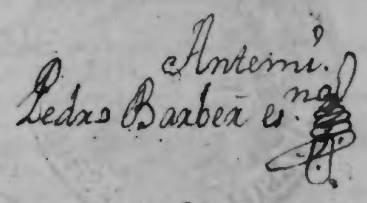 Antemi.
Pedro Barber es.no